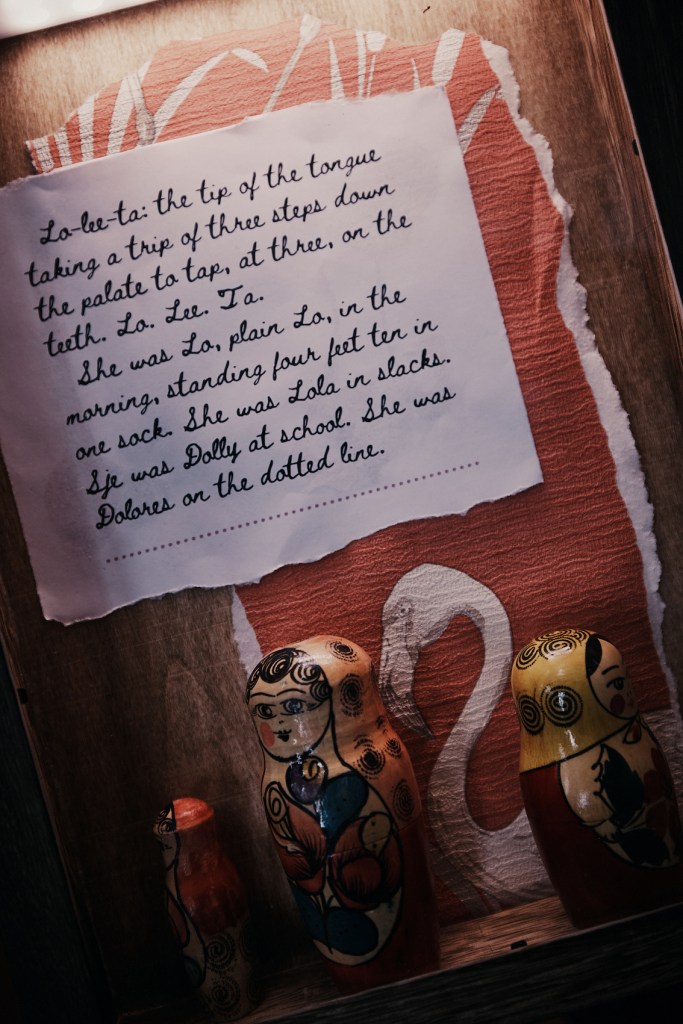 Lo-lee-ta: the tip of the tongue
taking a trip of three steps down
the palate to tap, at three, on the
teeth. Lo. Lee. Ta.
She was Lo, plain Lo, in the
morning, standing four feet ten in
one sock. She was Lola in slacks.
Sje was Dolly at school. She was
Dolores on the dotted line.